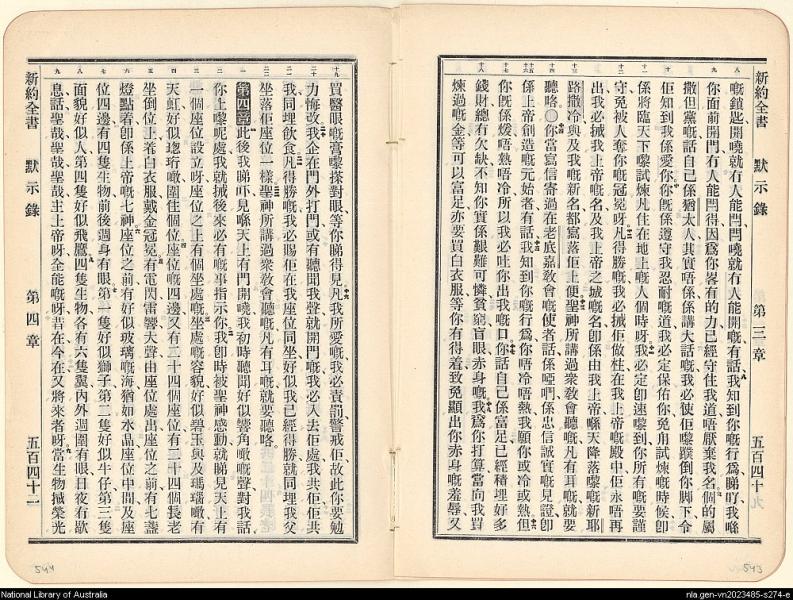 新約全書 默示錄 第三章 五百四十
嘅鎖匙開嘵就有人能閂閂嘵就有人能開嘅有話我知到你嘅行爲睇吖我喺
你面前開門冇人能閂得因爲你畧有的力已經守住我道唔厭棄我名個的屬
撒但黨嘅話自己係猶太人其實唔係係講大話嘅我必使佢嚟蹼倒你脚下令
佢知到我係愛你你旣係遵守我忍耐嘅道我必定保佑你免用試煉嘅時候卽
係將臨天下嚟試煉凡住在地上嘅人個時呀我必定卽速嚟到你所有嘅要謹
守免被人奪你嘅冠冕呀凡得勝嘅我必㨢佢做柱在我上帝嘅殿中佢永唔再
出我必㨢我上帝嘅名及我上帝之城嘅名卽係由我上帝喺天降落嚟嘅新耶
路撒冷與及我嘅新名都寫落佢上便聖神所講過衆敎會聽嘅凡有耳嘅就要
聽咯〇你當寫信寄過在老底嘉敎會嘅使者話係啞們係忠信誠實嘅見證卽
係上帝創造嘅元始者有話我知到你嘅行爲你唔冷唔熱我願你或冷或熱但
你旣係煖唔熟唔冷所以我必吐你出我嘅口你話自己係富足已經積埋好多
錢財總冇欠缺不知你實係艱難可憐貧窮盲眼赤身嘅我爲你打算當向我買
煉過嘅金等可以富足亦要買白衣服等你有得着致免顯出你赤身嘅羞辱又
543
買醫眼嘅膏嚟搽對眼等你睇得見凡我所愛嘅我必責罰警戒佢故此你要勉
力悔改我企在門外打門或有聽聞我聲就開門嘅我必入去佢處我共佢佢共
我同埋飲食凡得勝嘅我必賜佢在我座位同坐好似我已經得勝就同埋我父
坐落佢座位一樣聖神所講過衆敎會聽嘅凡有耳嘅就要聽咯
第四章此後我睇吓見喺天上有門開嘵我初時聽聞好似響角噉嘅聲對我話
你上嚟呢處我就㨢後來必有嘅事指示你我卽時被聖神感動就睇見天上有
一個座位設立呀座位之上有個坐處嘅坐處嘅容貌好似碧玉與及瑪瑙噉有
天虹好似璁珩噉圍住個位座位嘅四邊又有二十四個座位有二十四個長老
坐倒位上着白衣服戴金冠冕有電閃雷響大聲由座位處出座位之前有七盞
燈點着卽係上帝嘅七神座位之前有好似玻璃嘅海猶如水晶座位中間及座
位四邊有四隻生物前後週身有眼第一隻好似獅子第二隻好似牛仔第三隻
面貌好似人第四隻好似飛鷹四隻生物各有六隻翼內外週圍有眼日夜冇歇
息話聖哉聖哉聖哉主上帝呀全能嘅呀昔在今在又將來者呀當生物㨢榮光
新約全書 默示錄 第四章 五百四十一
544
National Library of Australia
nla.gen-vn2023485-s274-e